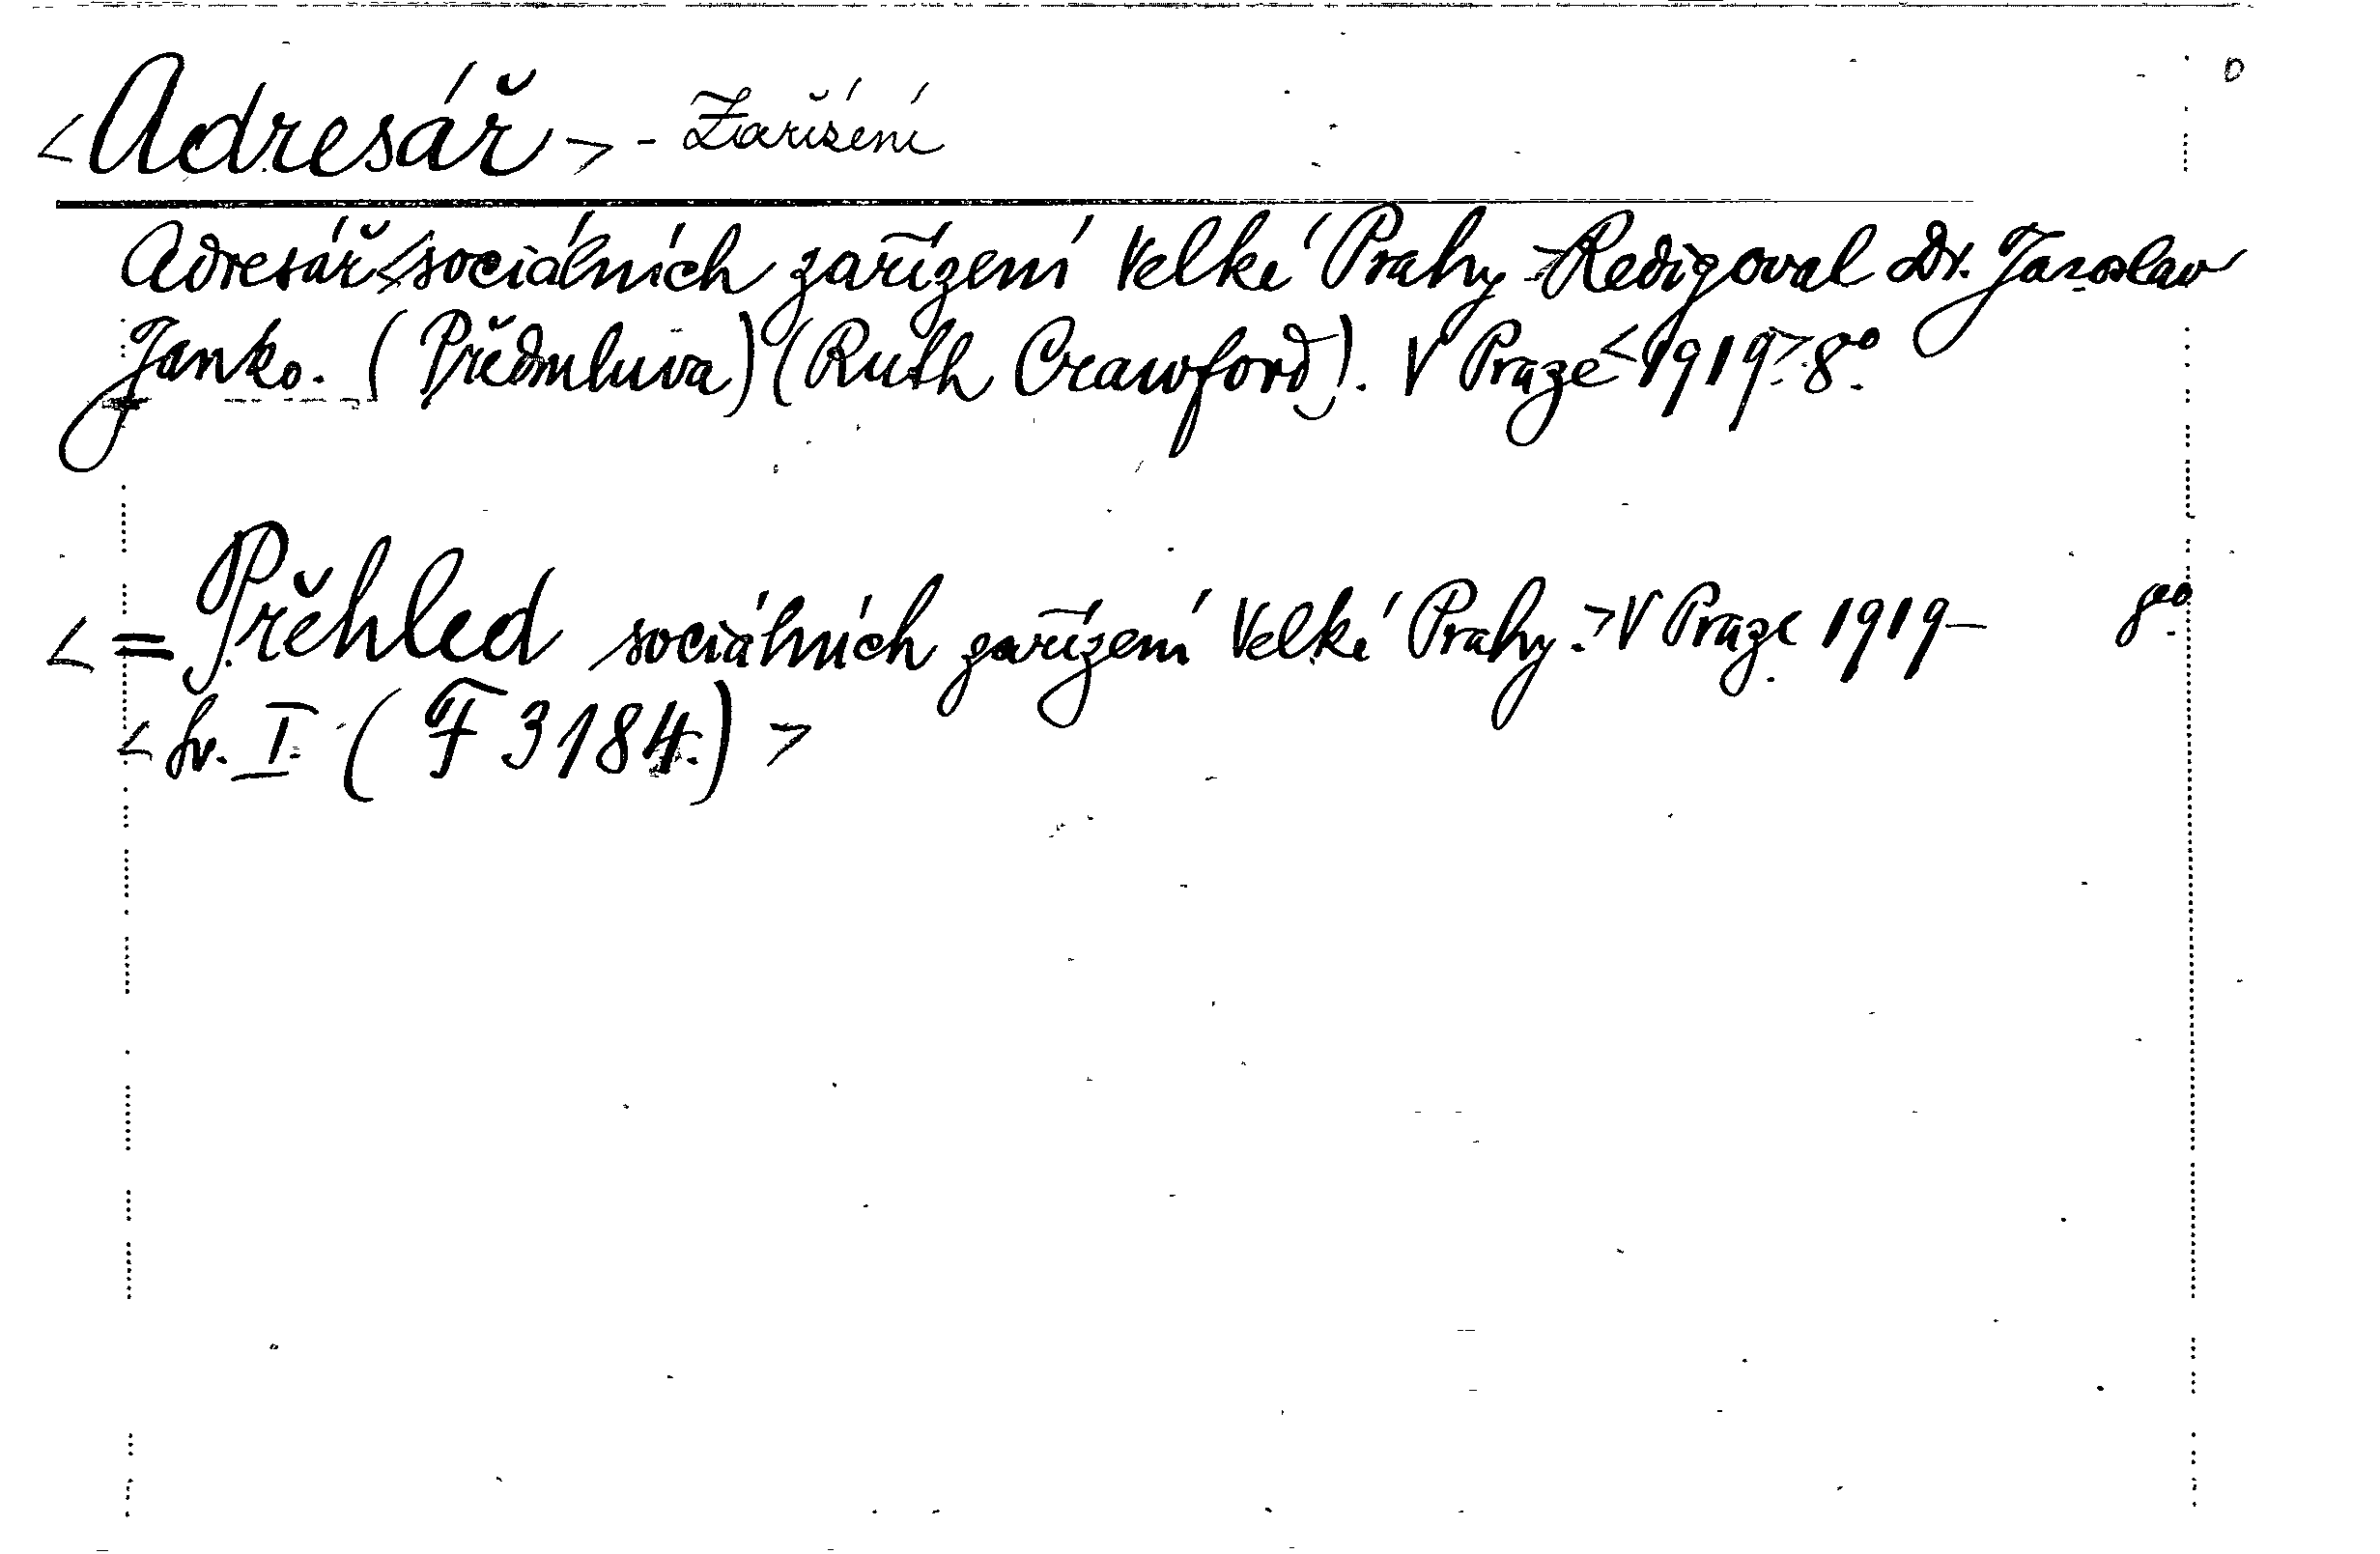 <Adresář> - Zařízení
Adresář <sociálních zařízení Velké Prahy> Redigoval Dr. Jaroslav
Janko. (Předmluva) (Ruth Crawford). V Praze <1919>. 8°.
<= Přehled sociálních zařízení Velké Prahy.> V Praze 1919- 8°°.
<Sv. I. (F 3184.)>